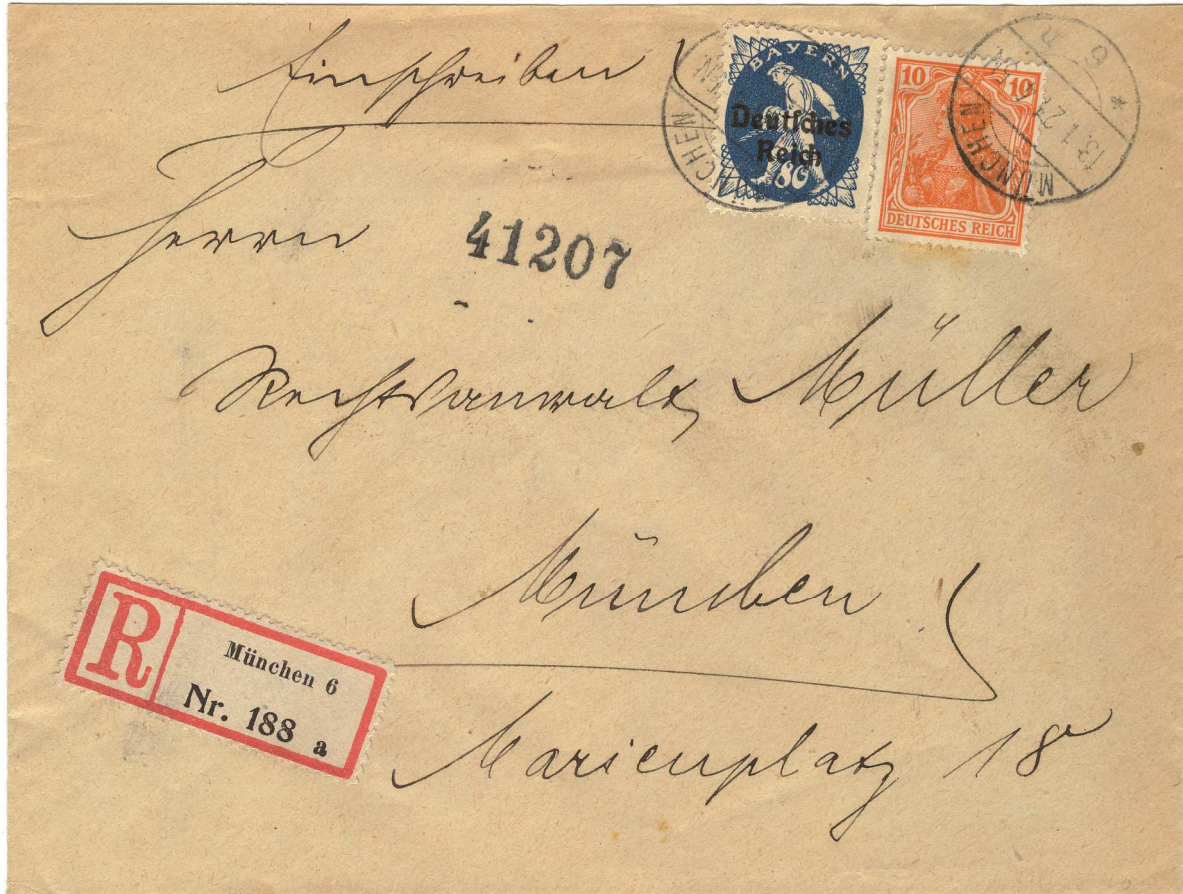 Einschreiben
BAYERN
Deutsches
Reich
80
10 10
DEUTSCHES REICH
MÜNCHEN
13.1.21
Herrn
41207
Rechtsanwalt Müller
München
R
München 6
Nr. 188 a
Marienplatz 18